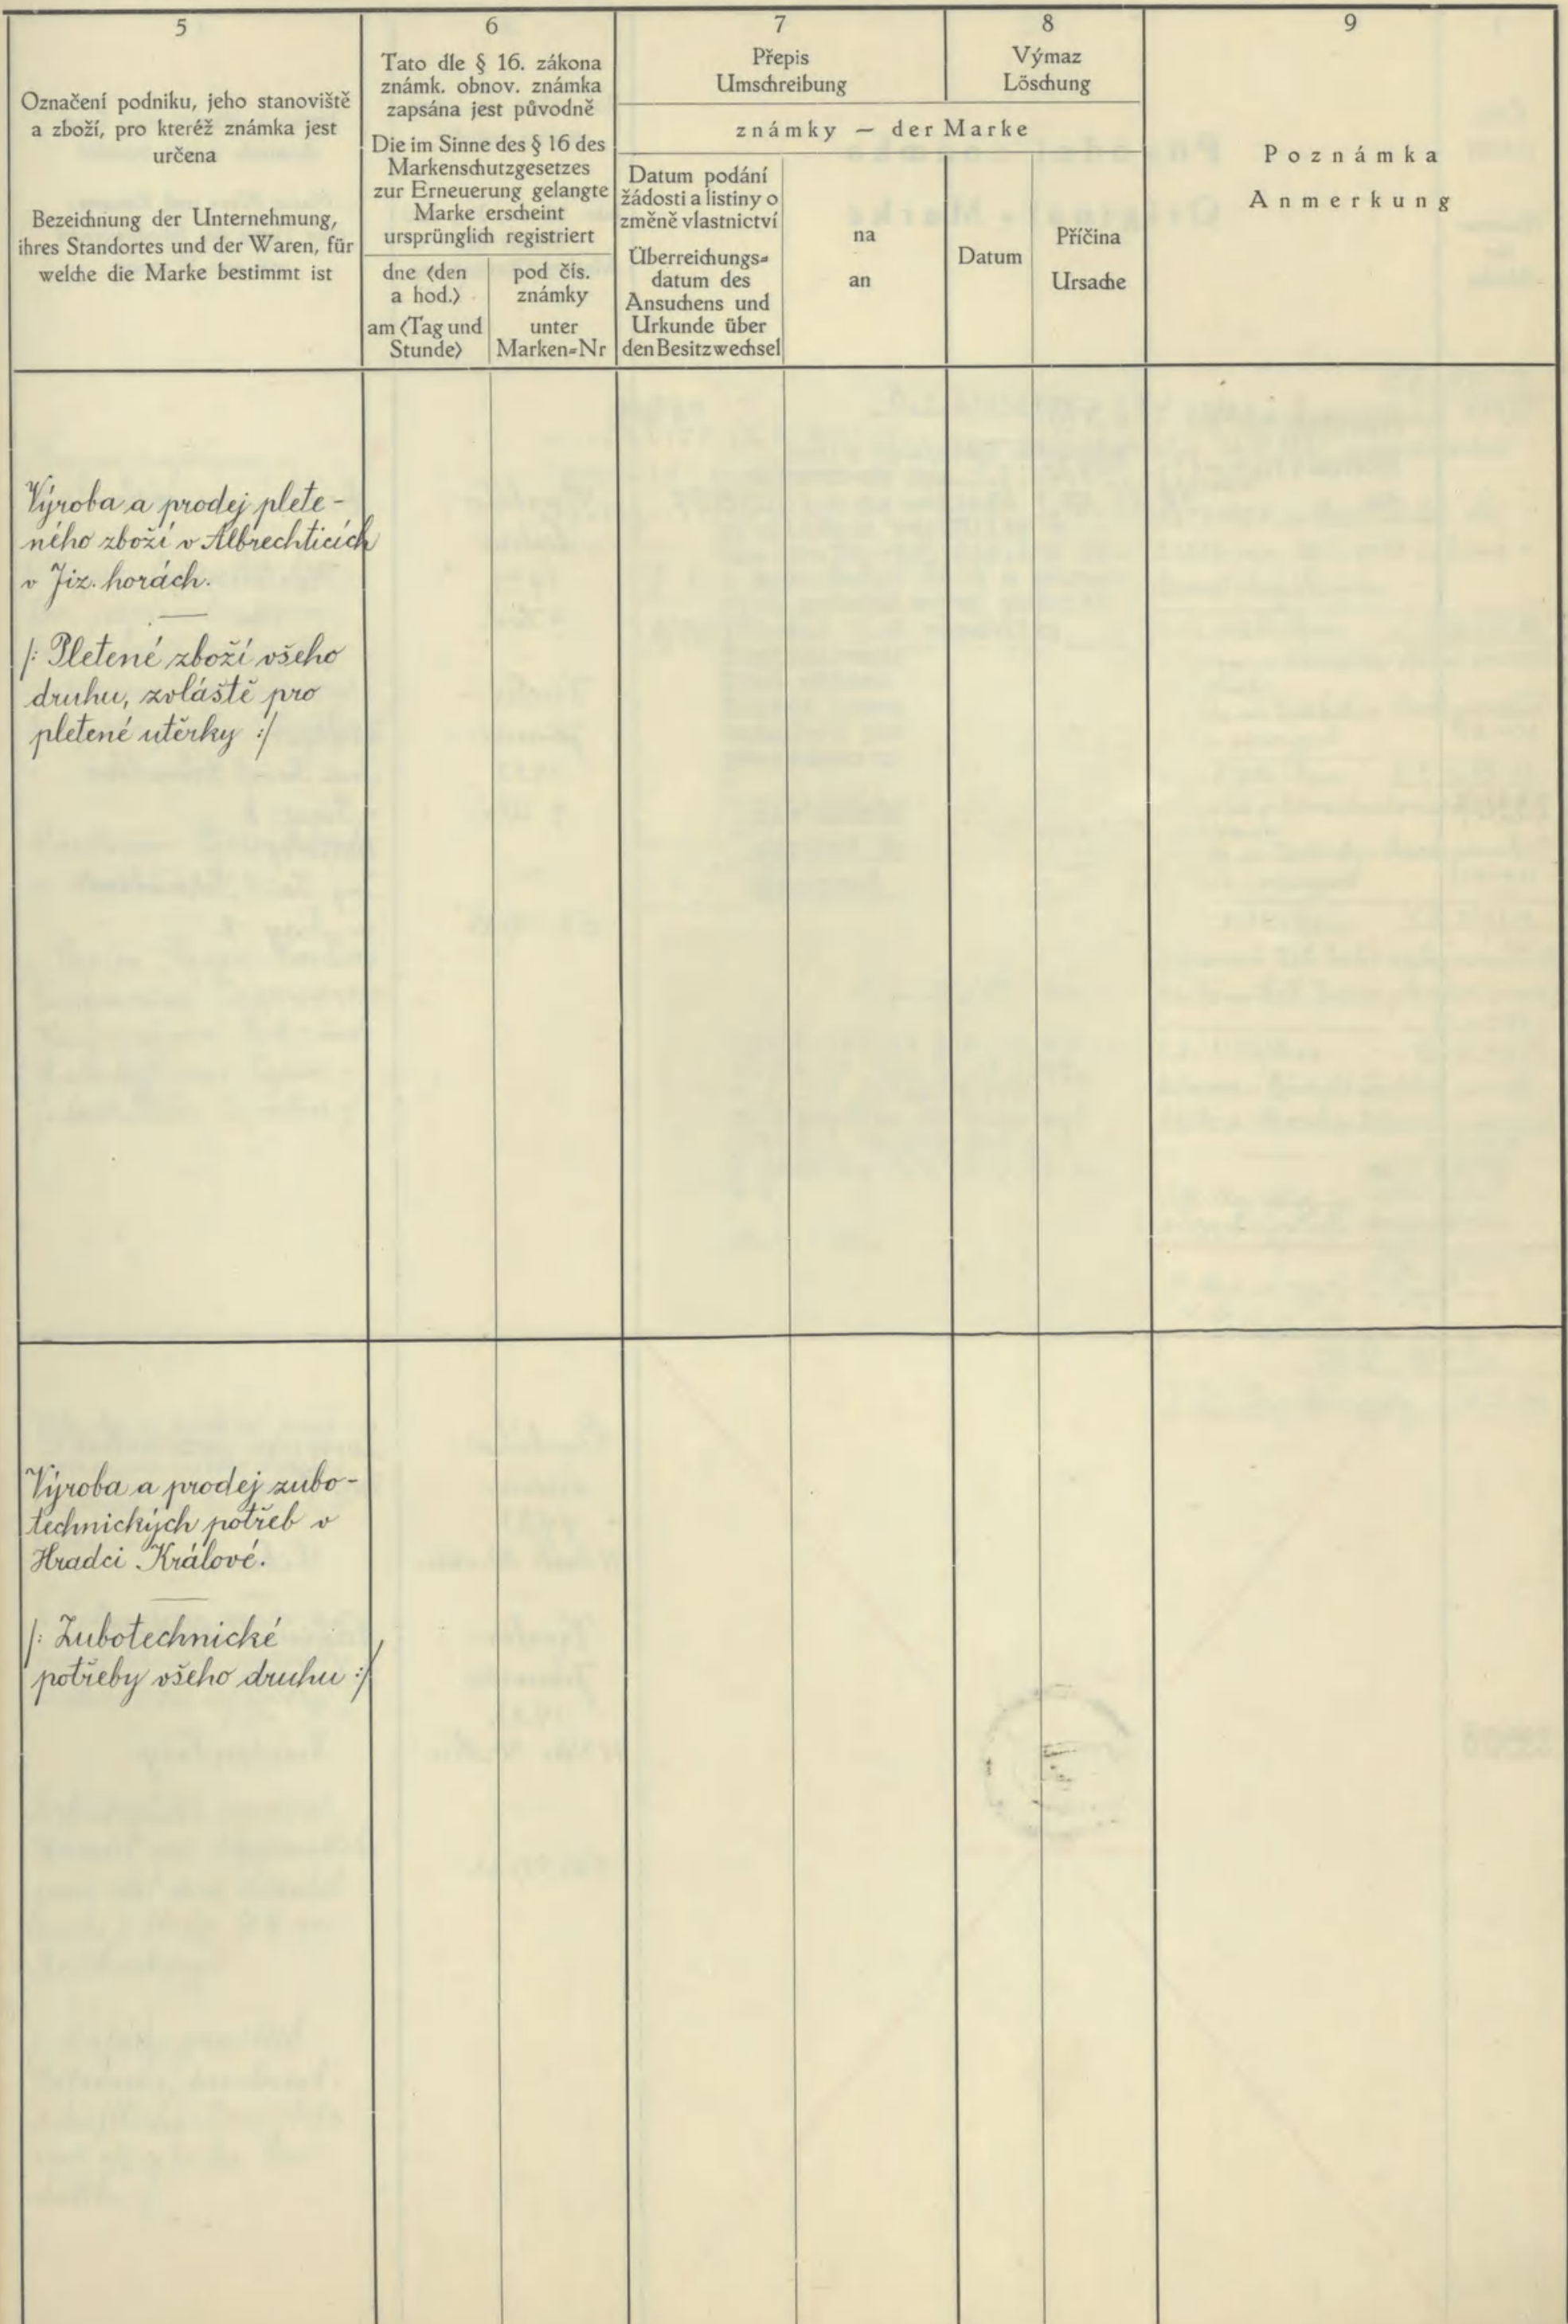 5
Označení podniku, jeho stanoviště
a zboží, pro kteréž známka jest
určena
Bezeichnung der Unternehmung,
ihres Standortes und der Waren, für
welche die Marke bestimmt ist
6
Tato dle § 16. zákona
známk. obnov. známka
zapsána jest původně
Die im Sinne des § 16 des
Markenschutzgesetzes
zur Erneuerung gelangte
Marke erscheint
ursprünglich registriert
dne (den
a hod.)
am (Tag und
Stunde)
pod čís.
známky
unter
Marken=Nr
7
Přepis
Umschreibung
8
Výmaz
Löschung
známky — der Marke
Datum podání
žádosti a listiny o
změně vlastnictví
Überreichungs=
datum des
Ansuchens und
Urkunde über
den Besitzwechsel
na
an
Datum
Příčina
Ursache
9
Poznámka
Anmerkung
Výroba a prodej plete-
ného zboží v Albrechticích
v Jiz. horách.
/: Pletené zboží všeho
druhu, zvláště pro
pletené utěrky :/
Výroba a prodej zubo-
technických potřeb v
Hradci Králové.
/: Zubotechnické
potřeby všeho druhu :/